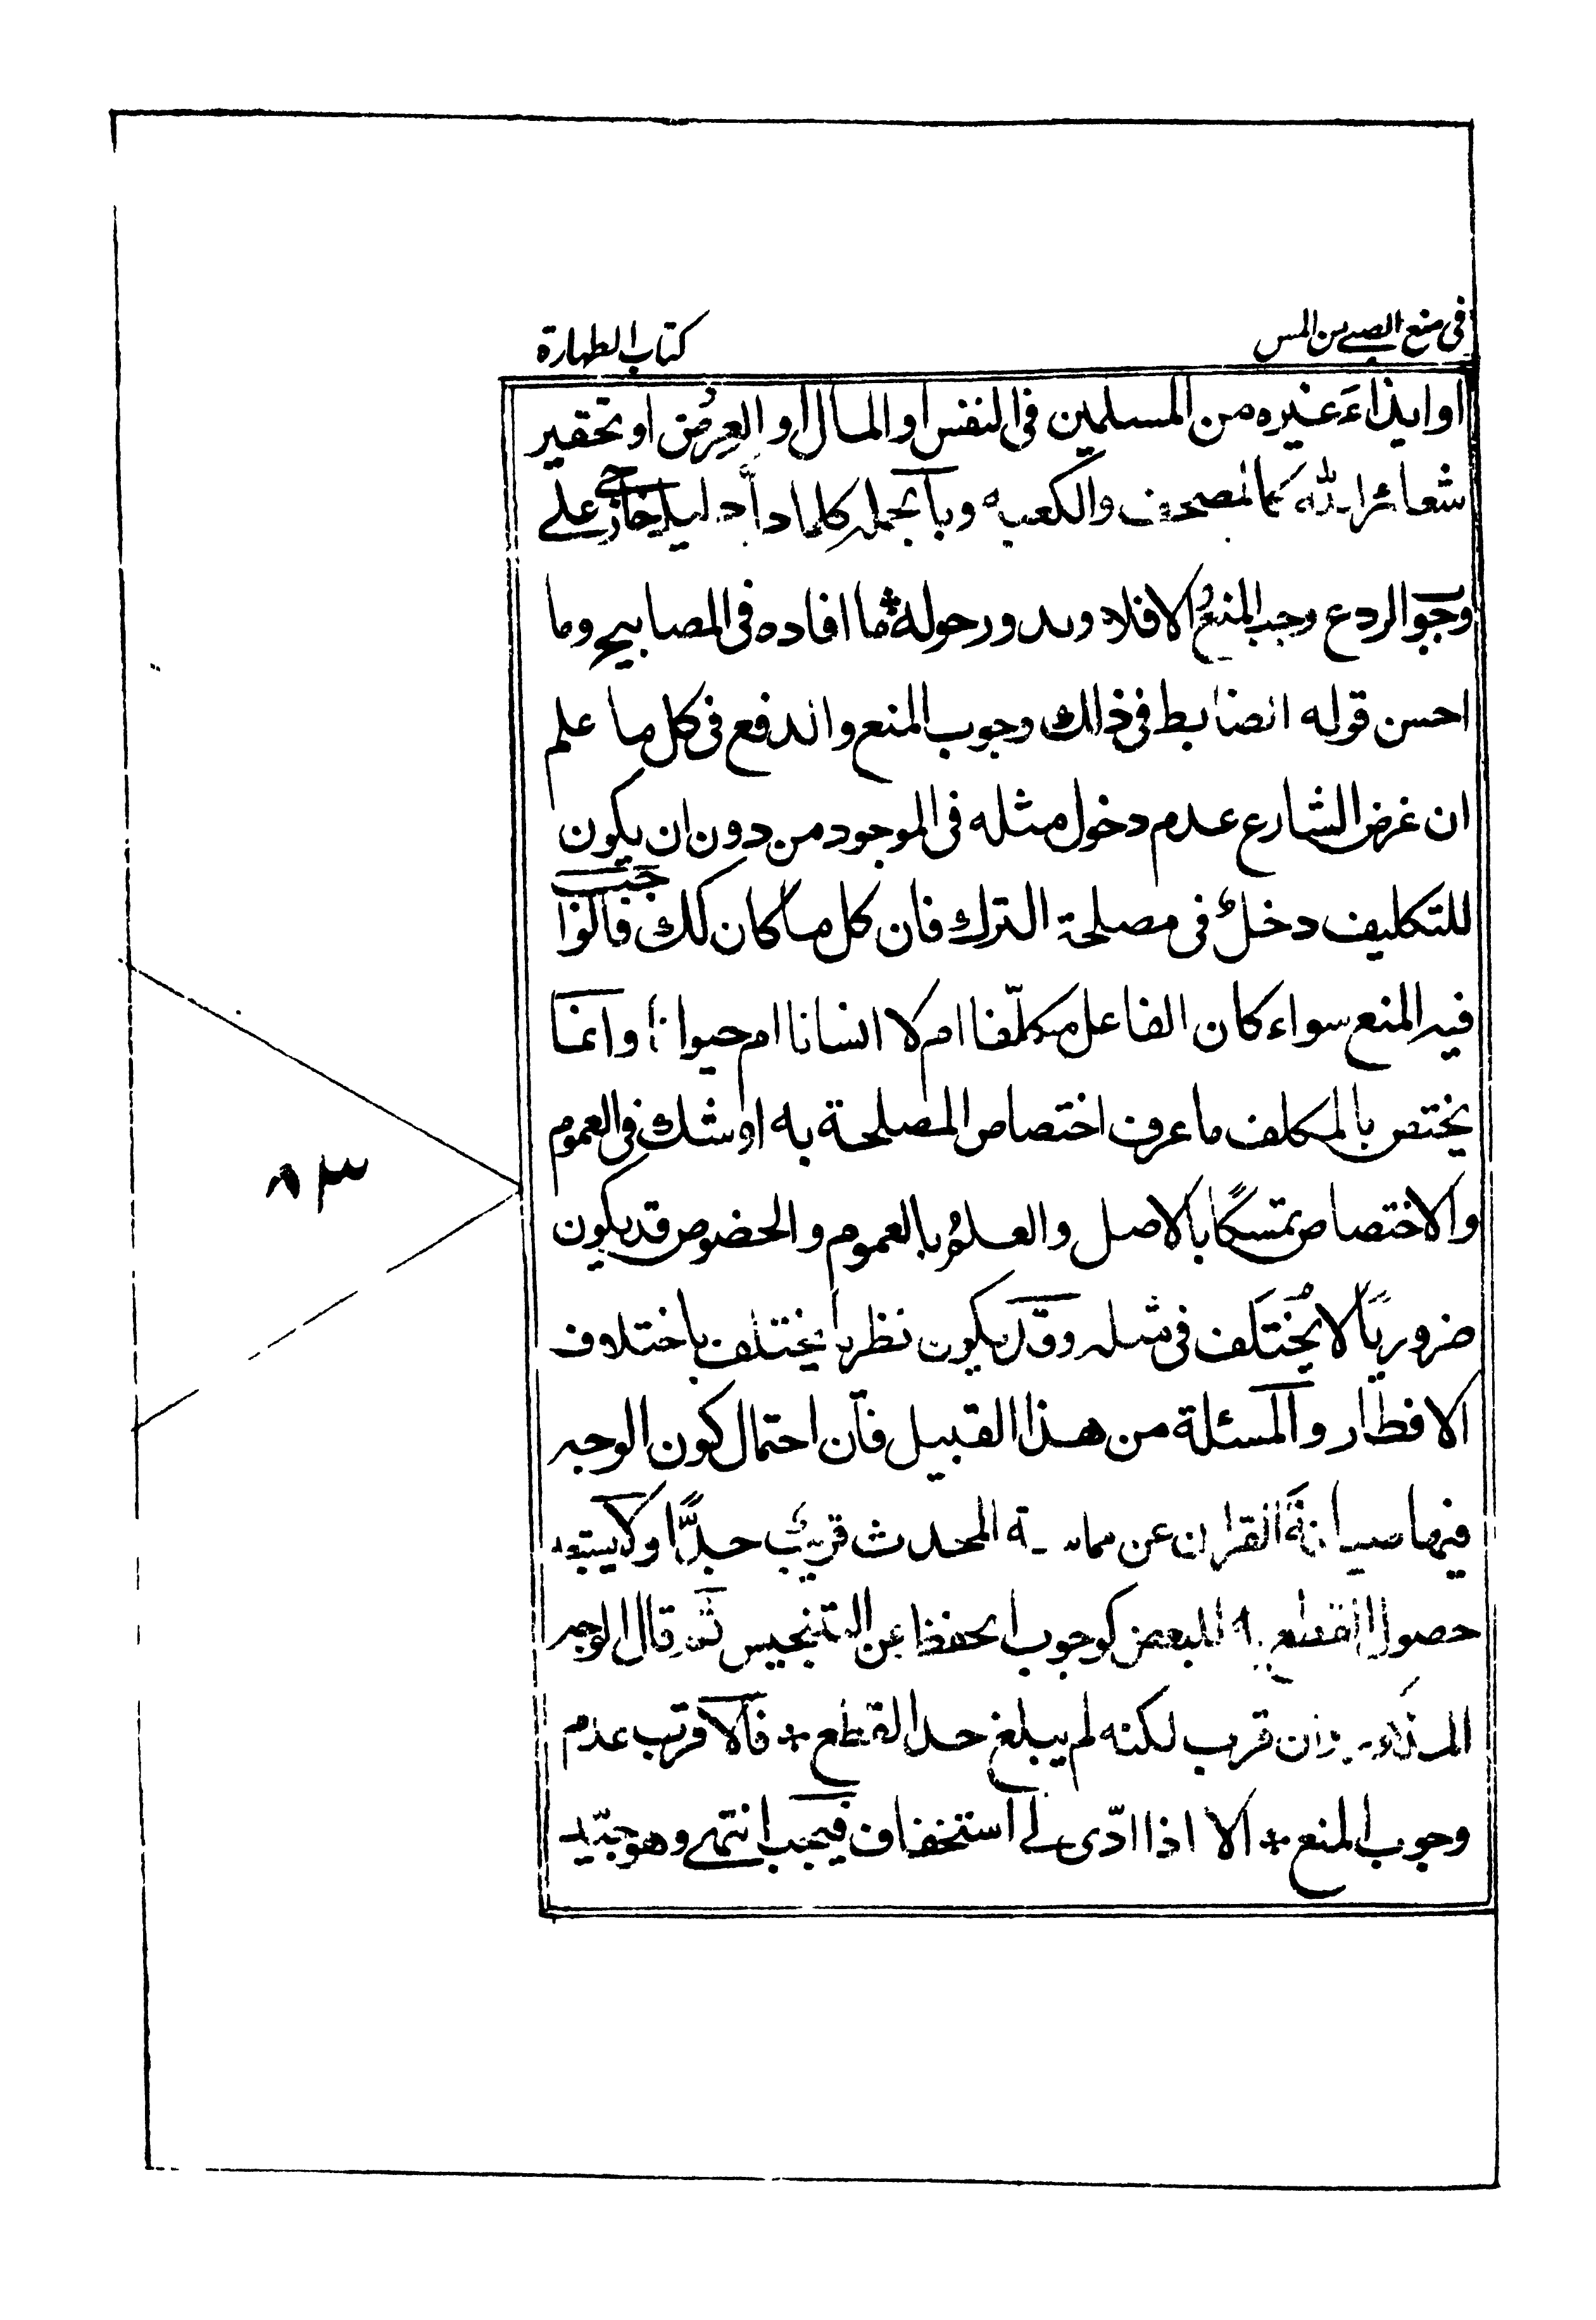 في منع الصبي من المس
كتاب الطهارة
او ايذاءَ غيره من المسلمين في النفس او المال او العِرض او تحقير
شعائر الله كالمصحف والكعبه وبالجمله كلما دلّ دليل خارجي على
وجوب الردع وجب المنعُ والا فلا ويدور حوله ما افاده في المصابيح وما
احسن قوله الضابط في ذلك وجوب المنع والدفع في كل ما علم
ان غرض الشارع عدم دخول مثله في الموجود من دون ان يكون
للتكليف دخلٌ في مصلحة الترك فان كل ما كان كك فالواجب
فيه المنع سواء كان الفاعل مكلّفا ام لا انسانا ام حيوانا وانما
يختص بالمكلف ما عرف اختصاص المصلحة به او شك في العموم
والاختصاص تمسكًا بالاصل والعلمُ بالعموم والخصوص قد يكون
ضروريًا لا يُختَلَف في مثله وقد يكون نظريا يختلف باختلاف
الانظار والمسئلة من هذا القبيل فان احتمال كون الوجه
فيها صيانةَ القران عن مماسة المحدث قريبٌ جدًّا ولا يستبعد
حصول القطع به للبعض كوجوب الحفظ عن التنجيس ثم قال الوجه
المذكور وان قرب لكنه لم يبلغ حد القطع * فالاقرب عدم
وجوب المنع * الا اذا ادّى الى استخفاف فيجب انتهى وهو جيّد
٨٣